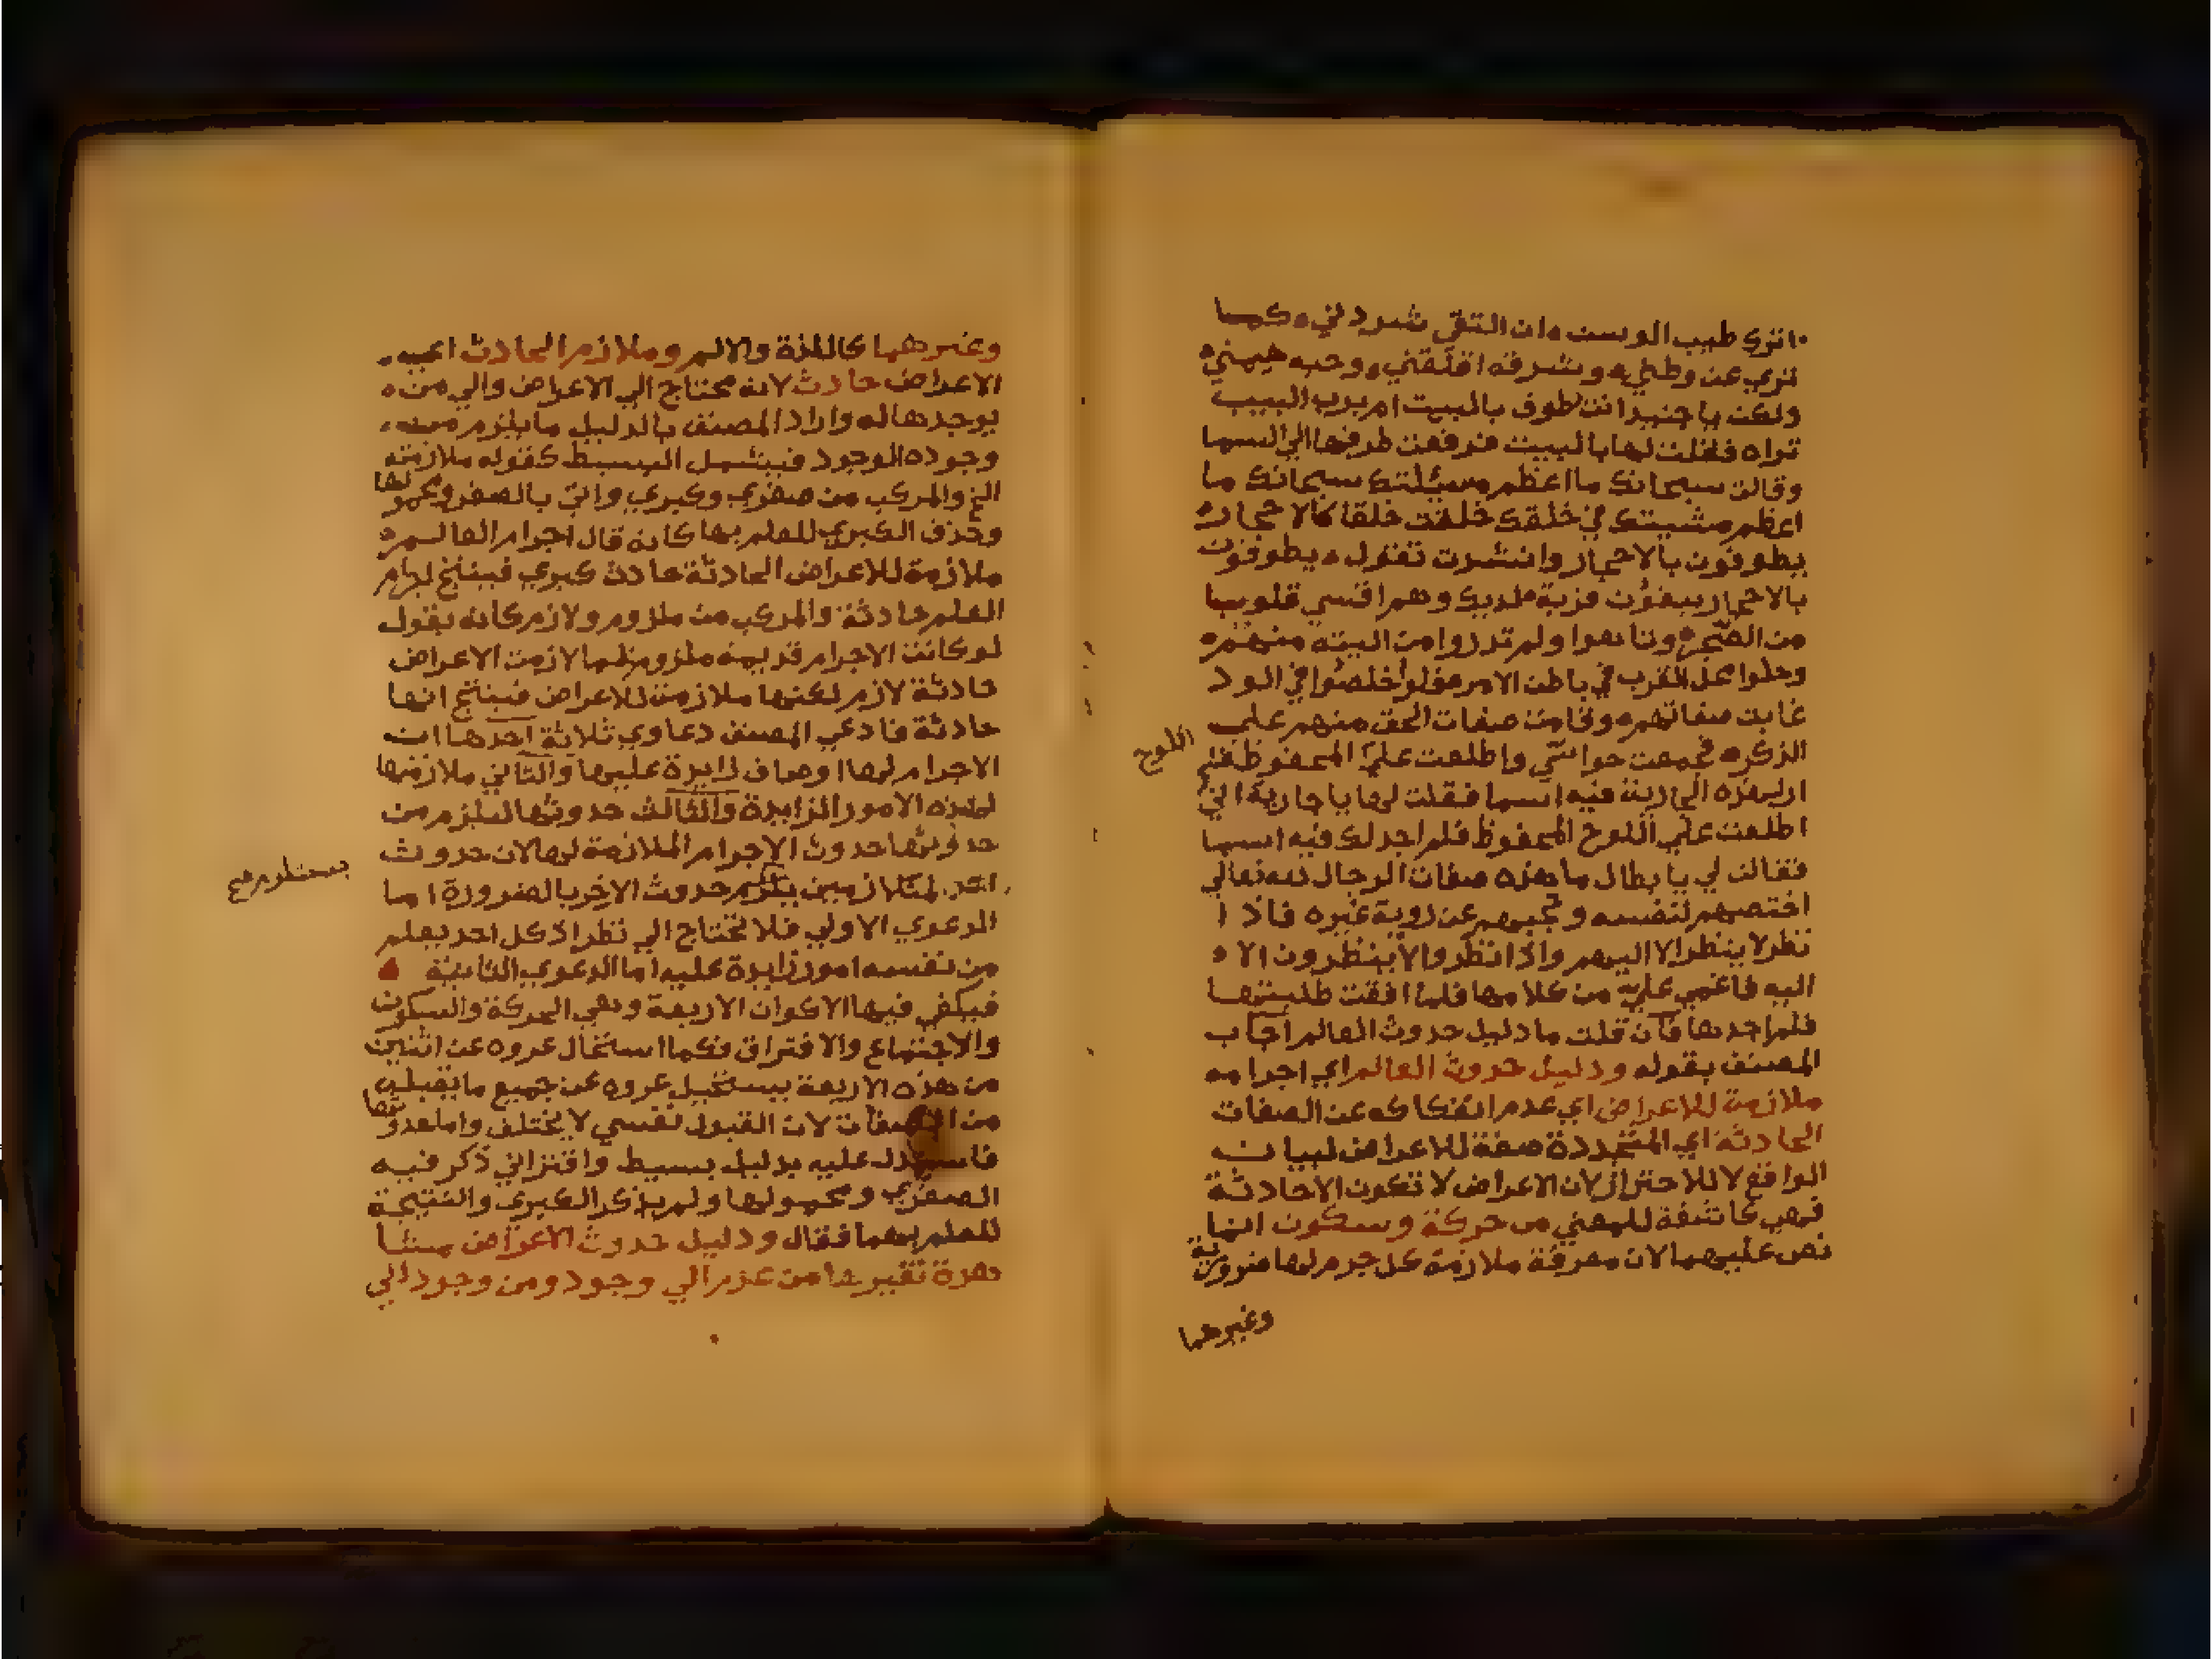 اتري طيب الوسن ان التقي شردني كما
تري عن وطني وشرقه اقلقني ووحبه هيمني
ولكن يا جنيد انت تطوف بالبيت ام برب البيت
تراه فقلت لها بالبيت فرفعت طرفها الي السما
وقالت سبحانك ما اعظم مسئلتك سبحانك ما
اعظم مشيتك في خلقك خلقت خلقا كالاحجار
يطوفون بالاحجار وانشدت تقول يطوفون
بالاحجار يبغون قربة اليك وهم اقسي قلوبا
من الصخر وتاهوا ولم تدروا من البيته منهم
وحلوا محل القرب في باطن الامر فلو اخلصوا في الود
غابت صفاتهم وقامت صفات الحق منهم علي
الذكر فجمعت حواسي واطلعت علي المحفوظ فلم
اللوح
ار لهذه الي رية فيه اسما فقلت لها يا جارية اني
اطلعت علي اللوح المحفوظ فلم اجد لك فيه اسما
فقالت لي يا بطال ما هذه صفات الرجال لله تعالي
اختصهم لنفسه وحجبهم عن روية غيره فاذا
نظر لا ينظر الا اليهم واذا نظروا لا ينظرون الا
اليه فاغمي علي من كلامها فلما افقت طلبتها
فلم اجدها فان قلت ما دليل حدوث العالم اجاب
المصنف بقوله ودليل حدوث العالم اي اجرامه
ملازمة للاعراض اي عدم انفكاكه عن الصفات
الحادثة اي المتجددة صفة للاعراض لبيان
الواقع لا للاحتراز لان الاعراض لا تكون الا حادثة
فهي كاشفة للمعني من حركة وسكون انما
نص عليهما لان معرفة ملازمة كل جرم لها ضرورية
وغيرهما
وغيرهما كاللذة والالم وملازم الحادث اي
الاعراض حادث لانه محتاج الي الاعراض والي من
يوجدها له واراد المصنف بالدليل ما يلزم من
وجوده الوجود فيشمل البسيط كقوله ملازمة
الخ والمركب من صغري وكبري واتي بالصغر ومحمولها
وحذف الكبري للعلم بها كانه قال اجرام العالم
ملازمة للاعراض الحادثة حادث كبري فينتج اجرام
العلم حادثة والمركب من ملزوم ولازم كانه يقول
لو كانت الاجرام قديمة ملزوم لما لازمت الاعراض
حادثة لازم لكنها ملازمة للاعراض فينتج انها
حادثة فادعي المصنف دعاوي ثلاثة احدها ان
الاجرام لها اوصاف زايدة عليها والثاني ملازمتها
لهذه الامور الزايدة والثالث حدوثها ليلزم من
حدوثها حدوث الاجرام الملازمة لها لان حدوث
احد المتلازمين يلزم حدوث الاخر بالضرورة اما
الدعوي الاولي فلا تحتاج الي نظر اذ كل احد يعلم
من نفسه امور زايدة عليه اما الدعوي الثانية
فيكفي فيها الاكوان الاربعة وهي الحركة والسكون
والاجتماع والافتراق فكما استحال عروه عن اثنين
من هذه الاربعة يستحيل عروه عن جميع ما يقبله
من الصفات لان القبول نفسي لا يختلف واما حدوثها
فاستدل عليه بدليل بسيط واقتراني ذكر فيه
الصغري ومحمولها ولم يذكر الكبري والنتيجة
للعلم بهما فقال ودليل حدوث الاعراض مشا
هدة تغيرها من عدم الي وجود ومن وجود الي